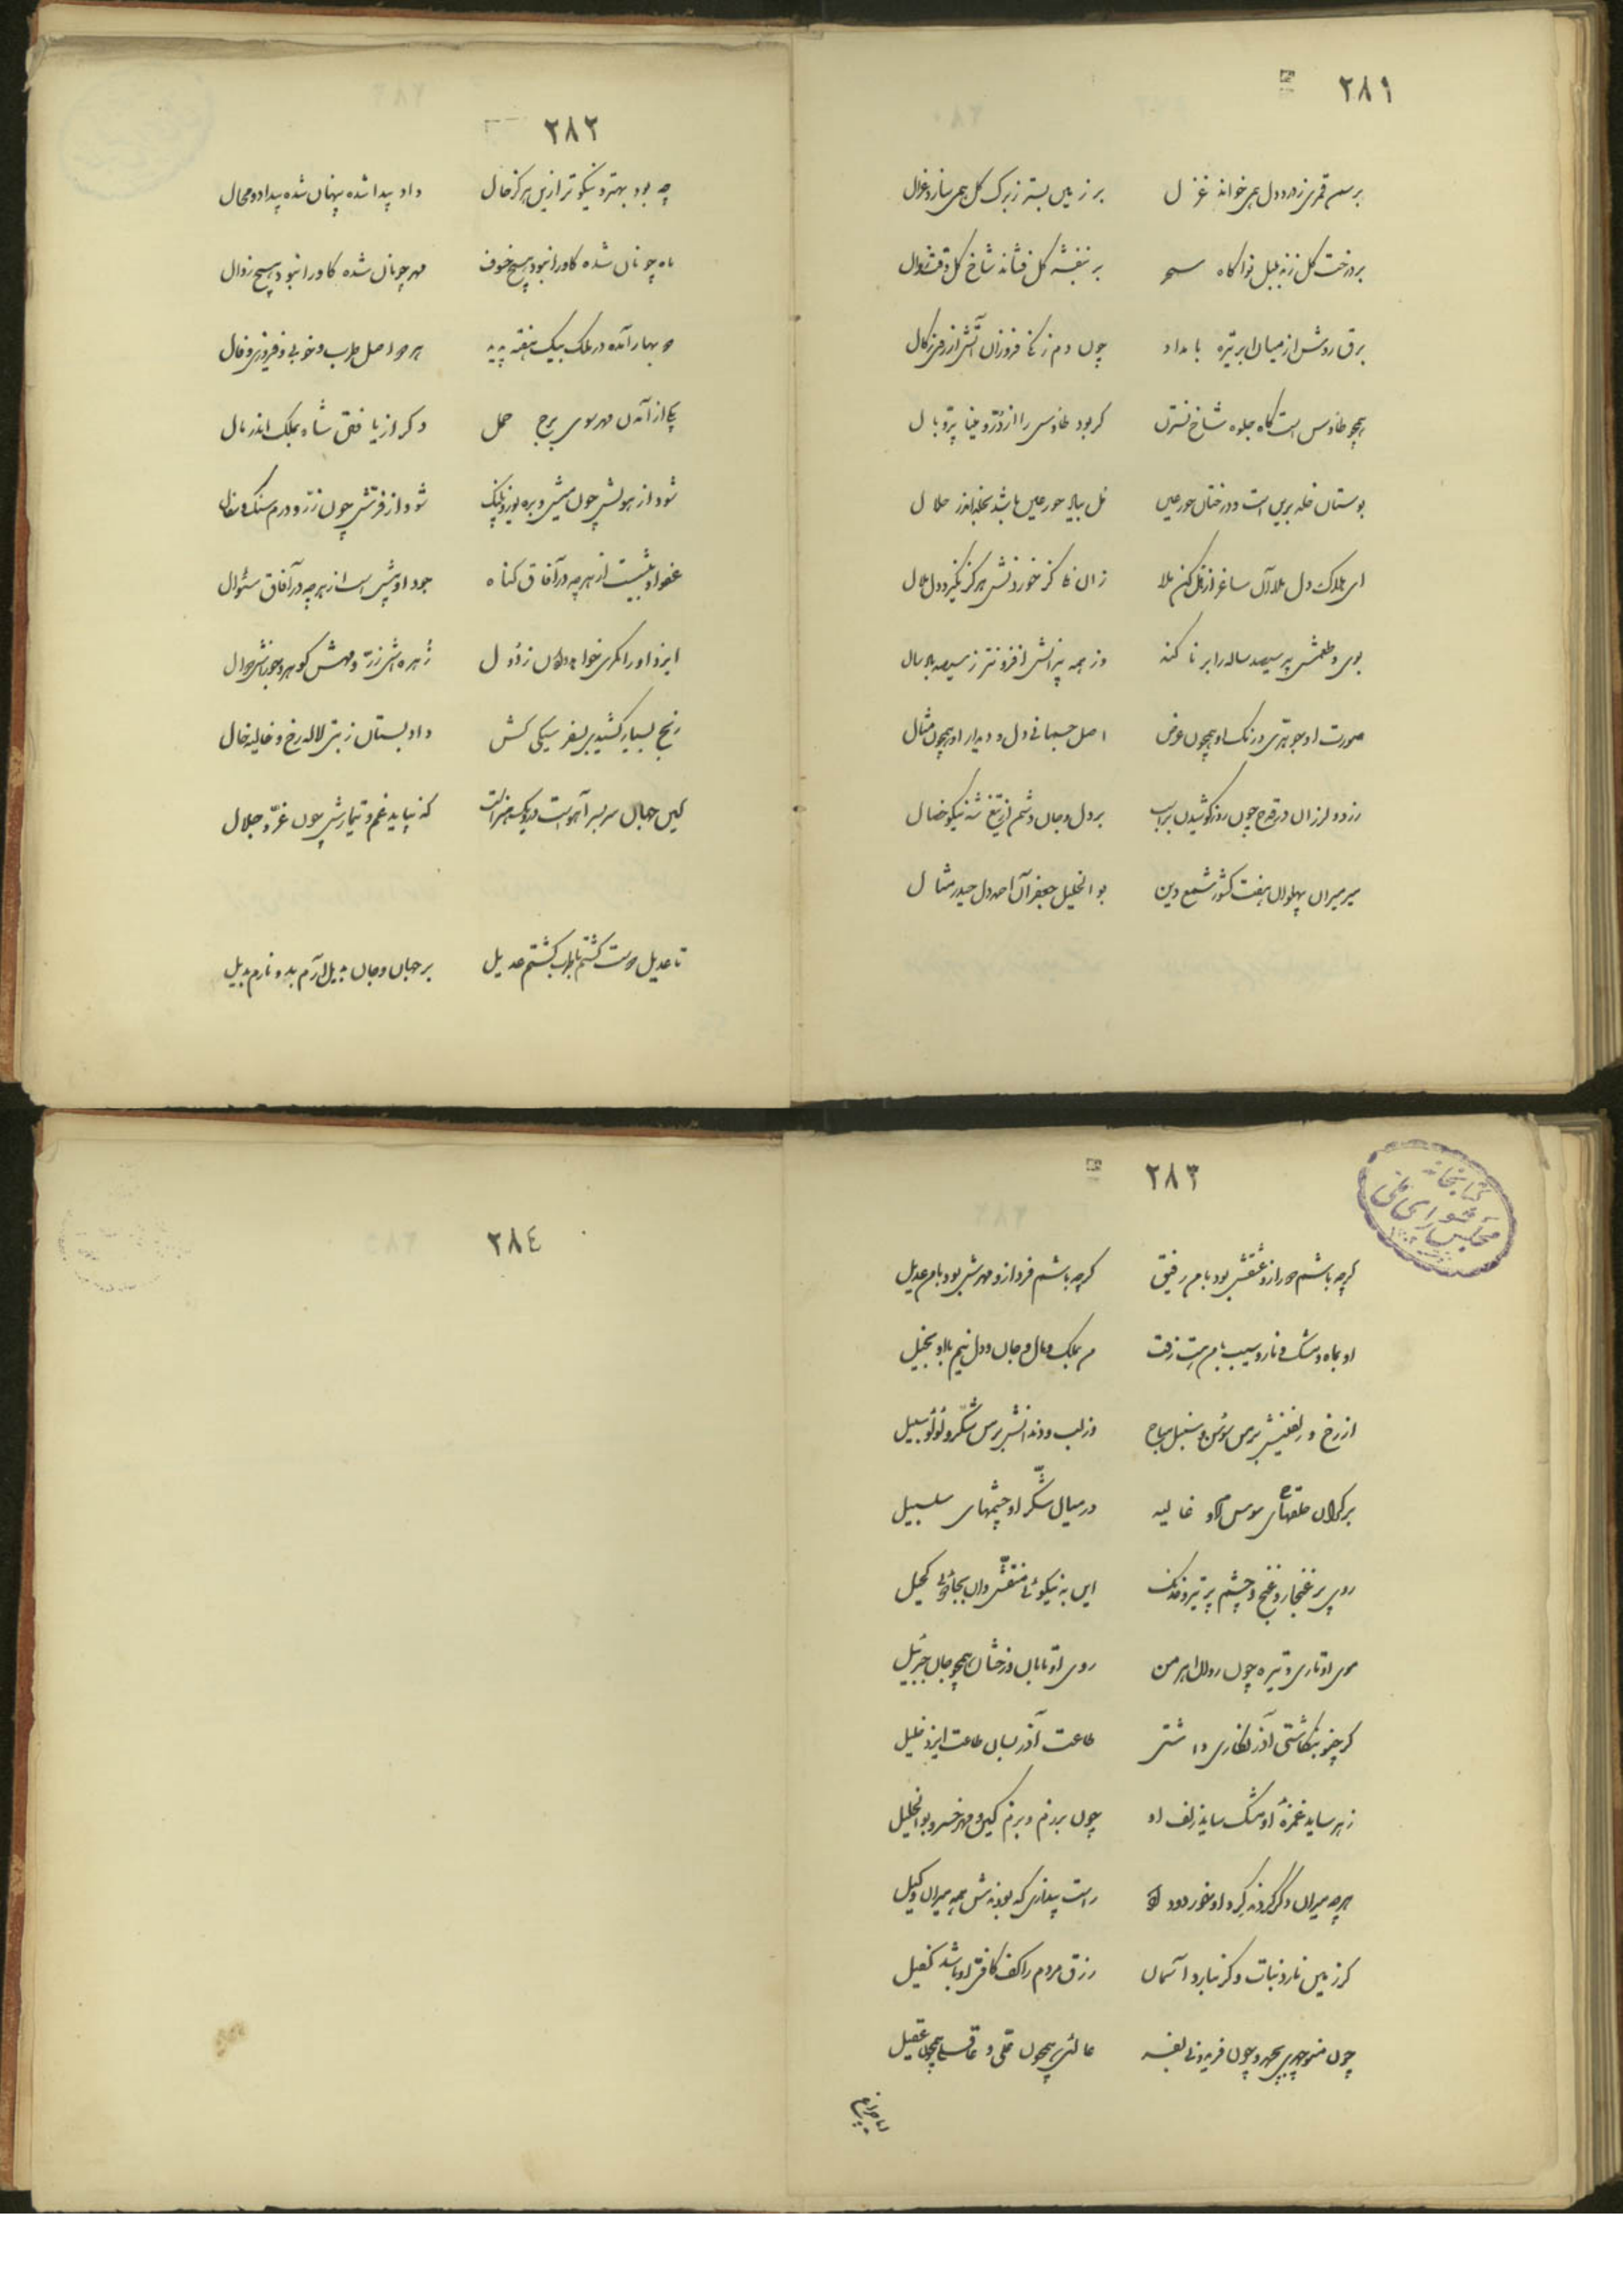 ۲۸۱
بر سمن قمری ز درد دل همی خواند غزل    بر زمین بستر ز برگ گل همی سازد غزال
بر درخت گل زند بلبل نوا گاه سحر    بر بنفشه گل فشاند شاخ گل وقت زوال
برق روشن از میان ابر تیره بامداد    چون دم زنگی فروزان آتش از زکال
همچو طاوس است گاه جلوه شاخ نسترن    گر بود طاوس را از در و مینا پر و بال
بوستان خلد برین است و درختان حور عین    مل بیاور حور عین باشد بخلد اندر حلال
ای بلاک دل بلا آن ساغر از مل کن ملا    زان کجا کز خوردنش هرگز نگیرد دل ملال
بوی و طعمش پیر سیصد ساله را برنا کند    وز همه پیرانش افزونتر ز سیصد سال
صورت او جوهری و رنگ او همچون عرض    اصل جسمانی دل و دیدار او همچون مثال
زرد و لرزان در قدح چون روز کوشیدن بر اسب    بر دل و جان دشمن از تیغ شه نیکو خصال
میر میران پهلوان هفت کشور شمع دین    بو الخلیل جعفر آن احمد دل حیدر مثال
۲۸۲
چه بود بهتر و نیکوتر ازین هرگز حال    داد پیدا شده پنهان شده بیداد و محال
ماه چونان شده کاورا نبود هیچ خسوف    مهر چونان شده کاورا نبود هیچ زوال
دو بهار آمده در ملک بیک هفته پدید    هر دو اصل طرب و خوبی و فیروزی و فال
یکی از آمدن مهر سوی برج حمل    دگر از یافتن شاه بملک اندر مال
شود از هولش چون میش و بره یوز و پلنگ    شود از فرش چون زر و درم سنگ و سفال
عفو او بیش است از هرچه در آفاق گناه    جود او بیش است از هرچه در آفاق سئوال
ایزد او را مکری خواه زدول    زهره اش زر و مهش گوهر و جورش جوال
رنج بسیار کشیدی بسفر نیکی کش    داد بستان ز بتی لاله رخ و غالیه خال
کین جهان سر بسر آهوست    که نپاید غم و تیمارش چون عز و جلال
تا عدیل دوست گشتم با طرب گشتم عدیل    بر جهان و جان بدیل آرم بدو نارم بدیل
۲۸۳
کتابخانه مجلس شورای ملی
گرچه باشم دور ازو عشقش بود با من رفیق    گرچه باشم فرد ازو مهرش بود با من عدیل
او بماه و مشک و نار و سیب با من زفت    من بملک و مال و جان و دل نیم با او بخیل
از رخ و زلفینش بر من سوسن و سنبل مباح    وز لب و دندانش بر من شکر و لولو سبیل
بر کران حلقهای سوسن او غالیه    در میان شکر او چشمهای سلسبیل
روی پر غنجار و غنج و چشم پر تیر و خدنگ    این به نیکوئی منقش وان بجادوئی کحیل
موی او تاری و تیره چون روان اهرمن    روی او تابان و رخشان همچو جان جبرئیل
گر چنو بنگاشتی آذر نگاری داشتی    طاعت آذر بسان طاعت ایزد خلیل
زهر ساید غمزهٔ او مشک ساید زلف او    چون برزم و بزم کین و مهر خسرو بو الخلیل
هرچه میران دگر کردند گرد او خورد و داد    راست پنداری که بودندش همه میران وکیل
گر زمین نارد نبات و گر نبارد آسمان    رزق مردم را کف کافی او باشد کفیل
چون منوچهری بچهر و چون فریدونی بفر    عالمی همچون علی و عاقلی همچون عقیل
۲۸٤